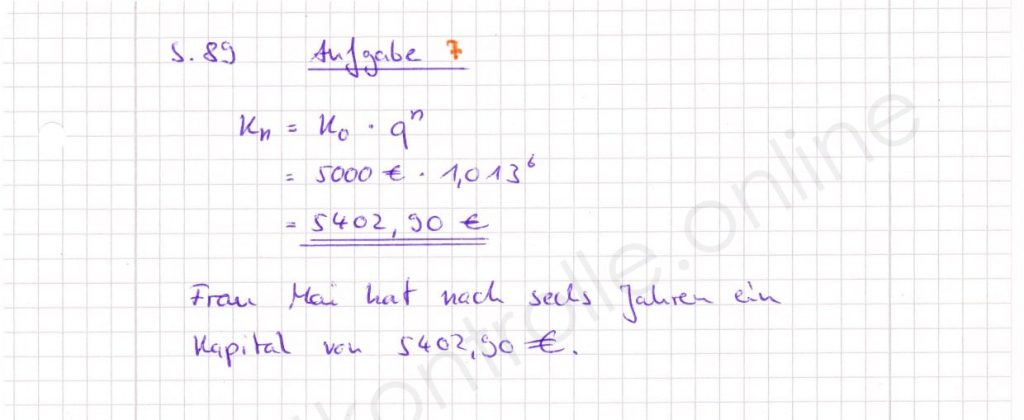 S. 89 Aufgabe 7
Kn = K0 · qⁿ
= 5000 € · 1,013⁶
= 5402,90 €
Frau Mai hat nach sechs Jahren ein
Kapital von 5402,90 €.
kontrolle.online